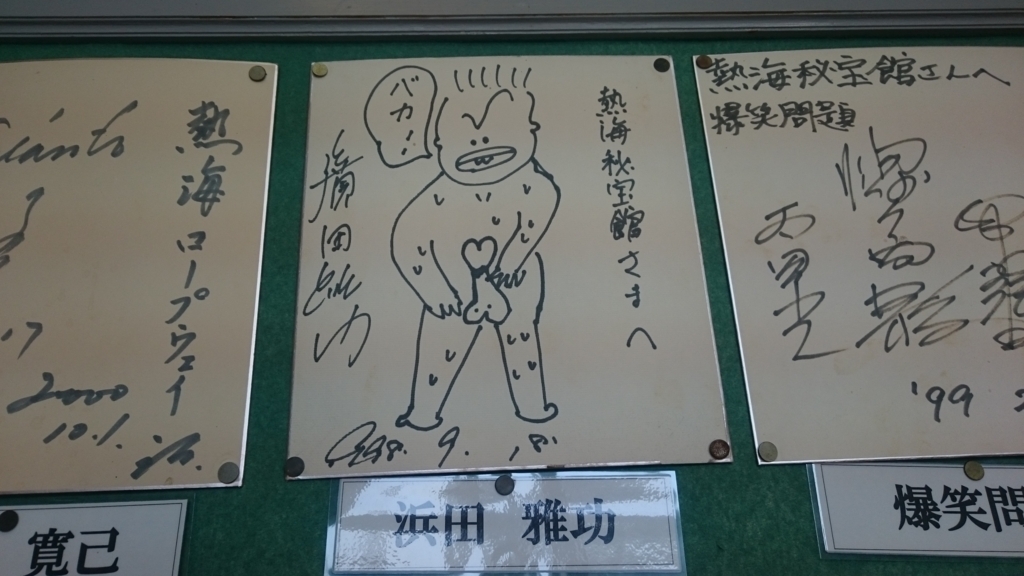 熱海ロープウェイ
2000
10.1.
寛己
熱海秘宝館さまへ
バカー!
濱田雅功
1998. 9. 18.
浜田 雅功
熱海秘宝館さんへ
爆笑問題
'99
爆笑問